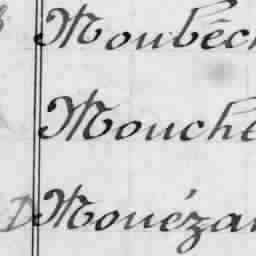 Moubêch
Mouche
Mouézan